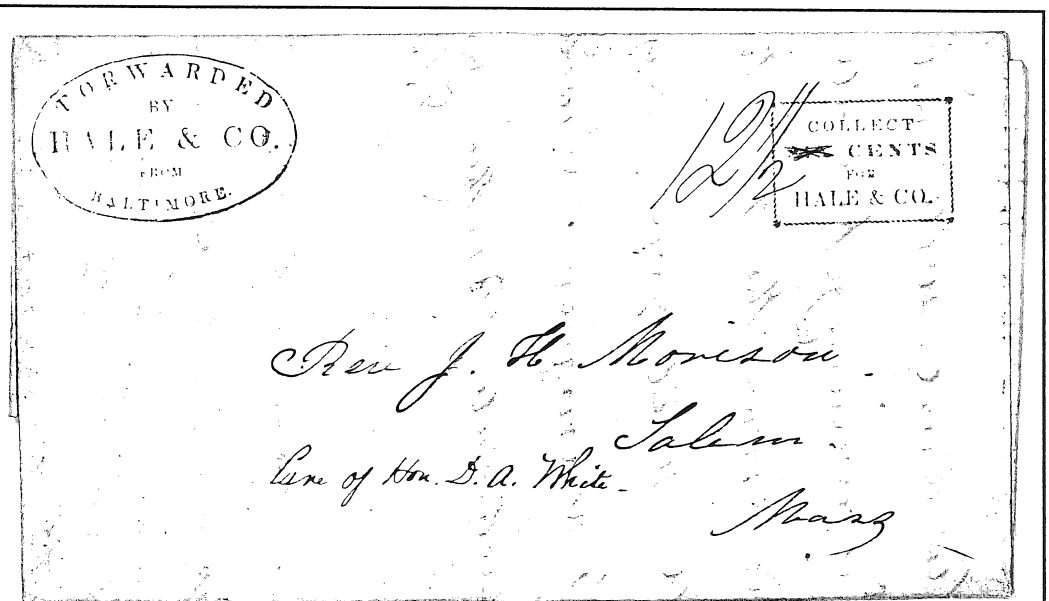 FORWARDED
BY
HALE & CO.
FROM
BALTIMORE.
12 1/2
COLLECT
CENTS
FOR
HALE & CO.
Rev J. H. Morison
Salem.
Care of Hon. D. A. White
Mass